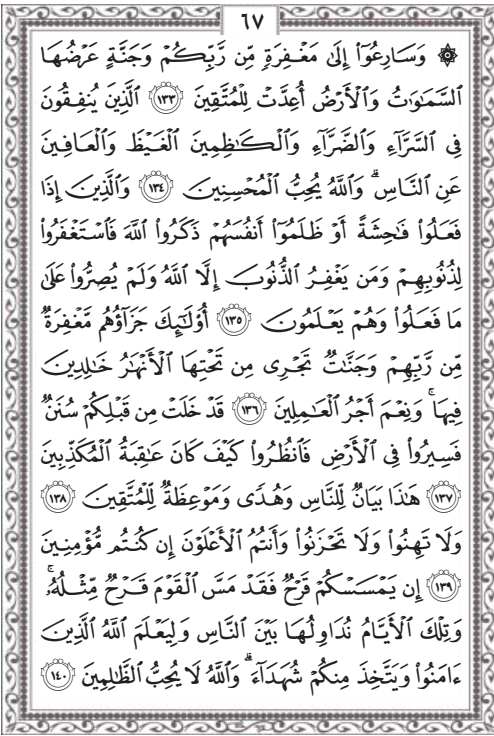 ٦٧
۞ وَسَارِعُوٓا۟ إِلَىٰ مَغْفِرَةٍ مِّن رَّبِّكُمْ وَجَنَّةٍ عَرْضُهَا
ٱلسَّمَـٰوَٰتُ وَٱلْأَرْضُ أُعِدَّتْ لِلْمُتَّقِينَ ١٣٣ ٱلَّذِينَ يُنفِقُونَ
فِى ٱلسَّرَّآءِ وَٱلضَّرَّآءِ وَٱلْكَـٰظِمِينَ ٱلْغَيْظَ وَٱلْعَافِينَ
عَنِ ٱلنَّاسِ ۗ وَٱللَّهُ يُحِبُّ ٱلْمُحْسِنِينَ ١٣٤ وَٱلَّذِينَ إِذَا
فَعَلُوا۟ فَـٰحِشَةً أَوْ ظَلَمُوٓا۟ أَنفُسَهُمْ ذَكَرُوا۟ ٱللَّهَ فَٱسْتَغْفَرُوا۟
لِذُنُوبِهِمْ وَمَن يَغْفِرُ ٱلذُّنُوبَ إِلَّا ٱللَّهُ وَلَمْ يُصِرُّوا۟ عَلَىٰ
مَا فَعَلُوا۟ وَهُمْ يَعْلَمُونَ ١٣٥ أُو۟لَـٰٓئِكَ جَزَآؤُهُم مَّغْفِرَةٌ
مِّن رَّبِّهِمْ وَجَنَّـٰتٌ تَجْرِى مِن تَحْتِهَا ٱلْأَنْهَـٰرُ خَـٰلِدِينَ
فِيهَا ۚ وَنِعْمَ أَجْرُ ٱلْعَـٰمِلِينَ ١٣٦ قَدْ خَلَتْ مِن قَبْلِكُمْ سُنَنٌ
فَسِيرُوا۟ فِى ٱلْأَرْضِ فَٱنظُرُوا۟ كَيْفَ كَانَ عَـٰقِبَةُ ٱلْمُكَذِّبِينَ
١٣٧ هَـٰذَا بَيَانٌ لِّلنَّاسِ وَهُدًى وَمَوْعِظَةٌ لِّلْمُتَّقِينَ ١٣٨
وَلَا تَهِنُوا۟ وَلَا تَحْزَنُوا۟ وَأَنتُمُ ٱلْأَعْلَوْنَ إِن كُنتُم مُّؤْمِنِينَ
١٣٩ إِن يَمْسَسْكُمْ قَرْحٌ فَقَدْ مَسَّ ٱلْقَوْمَ قَرْحٌ مِّثْلُهُۥ ۚ
وَتِلْكَ ٱلْأَيَّامُ نُدَاوِلُهَا بَيْنَ ٱلنَّاسِ وَلِيَعْلَمَ ٱللَّهُ ٱلَّذِينَ
ءَامَنُوا۟ وَيَتَّخِذَ مِنكُمْ شُهَدَآءَ ۗ وَٱللَّهُ لَا يُحِبُّ ٱلظَّـٰلِمِينَ ١٤٠